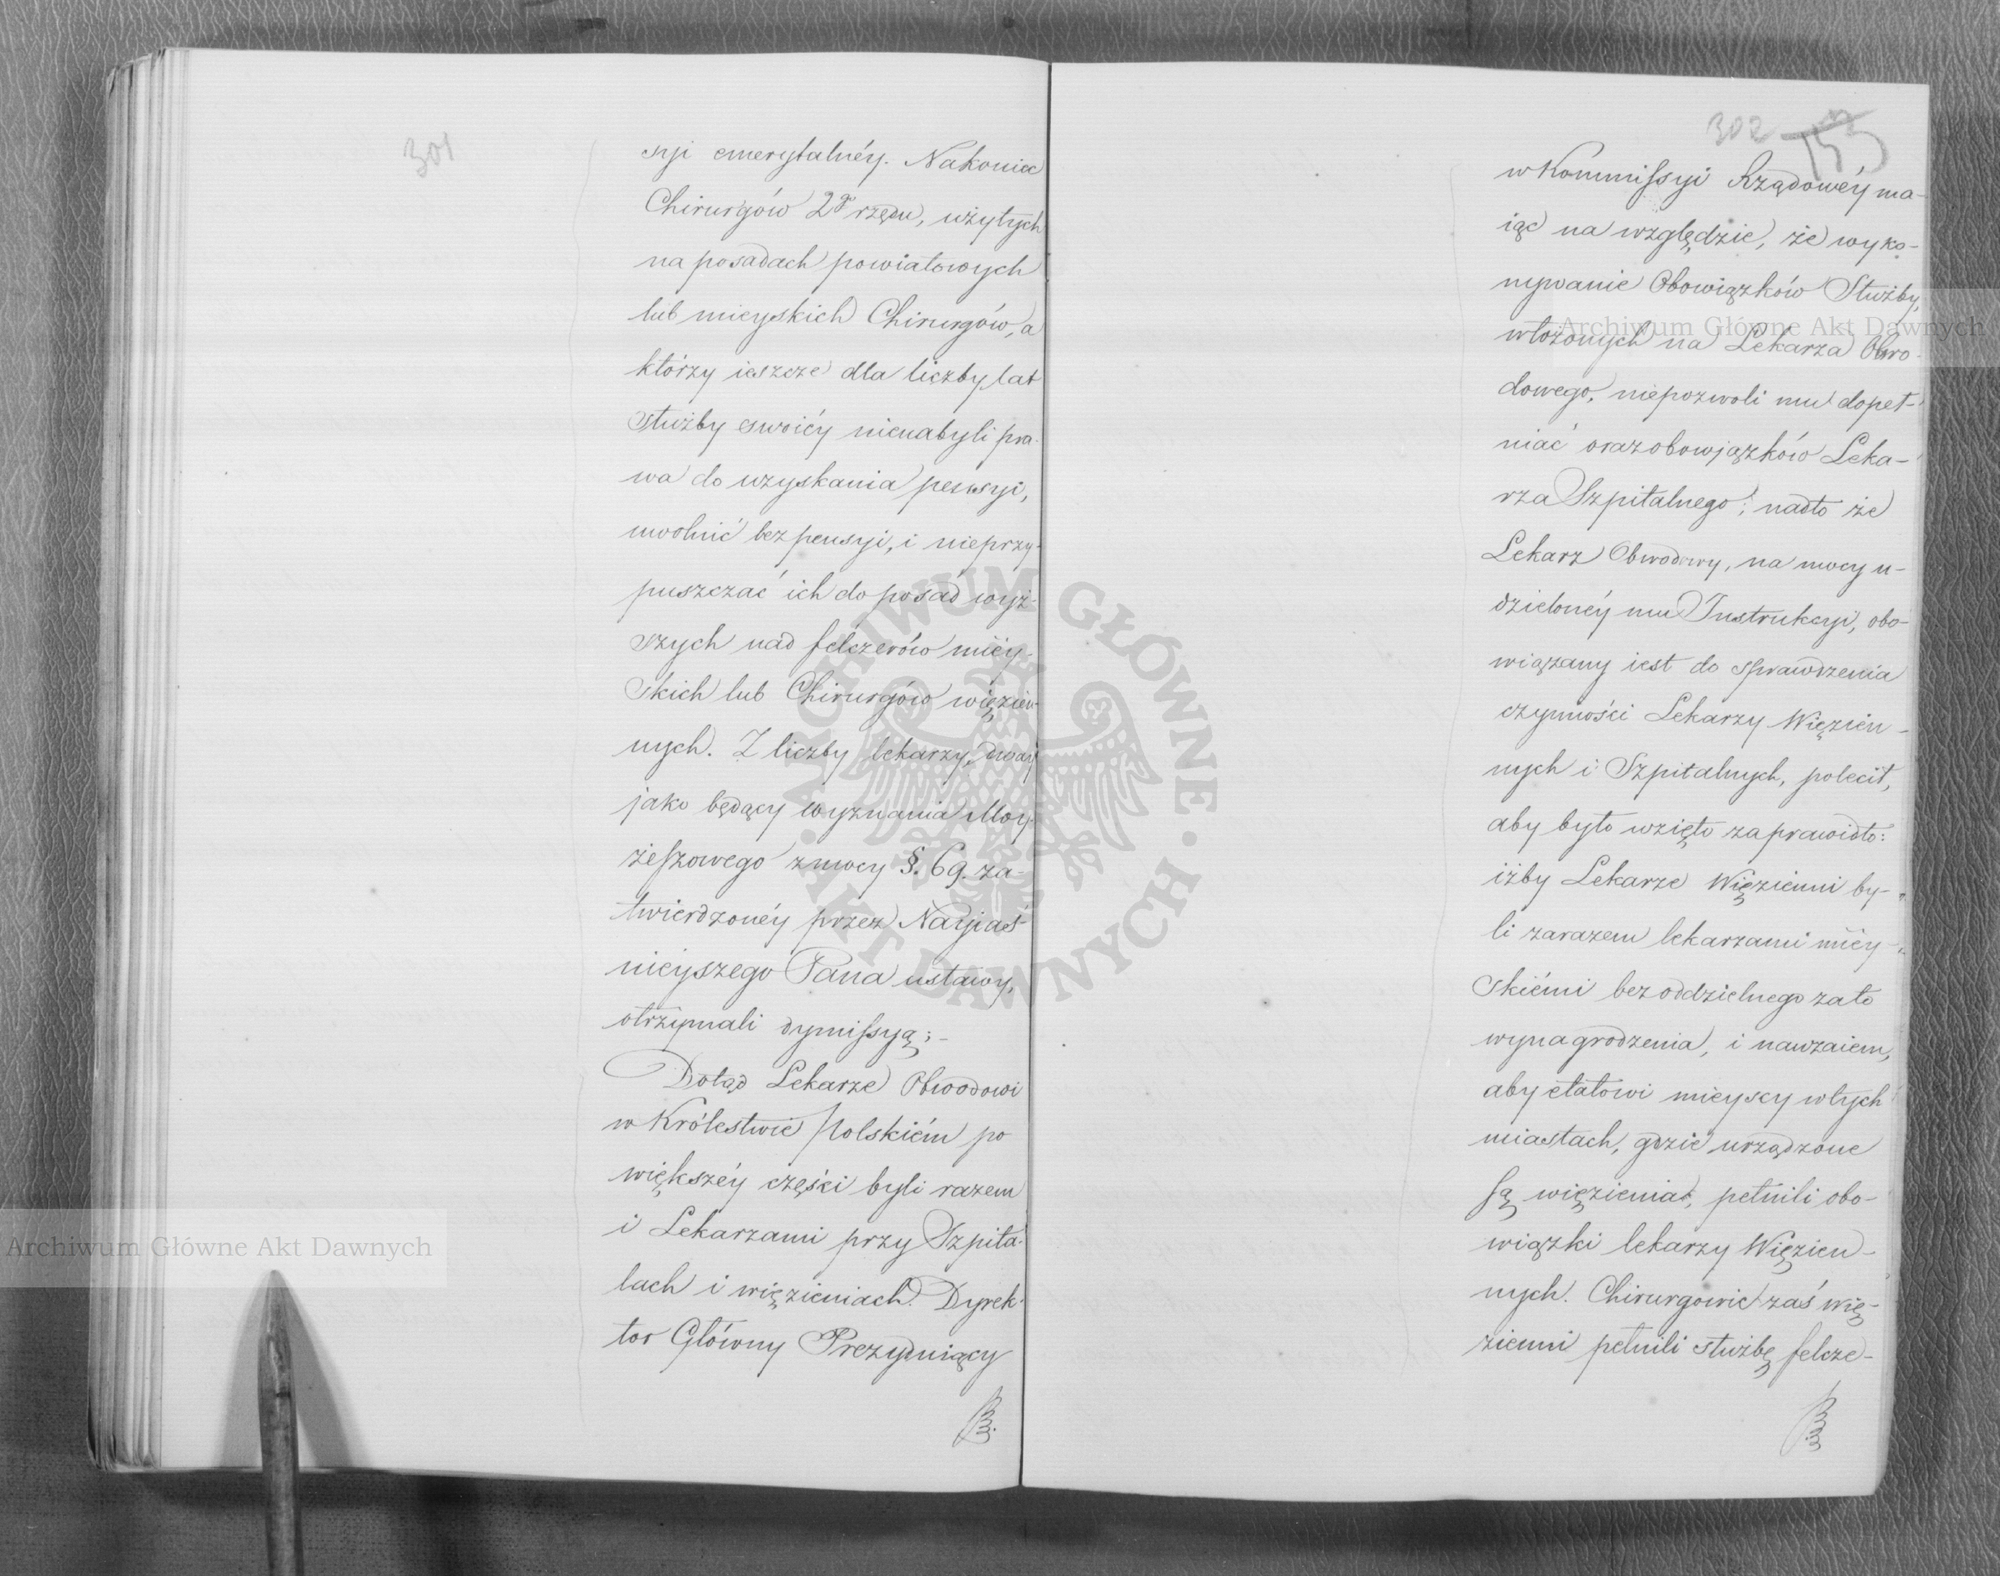 301
syi emerytalnéy. Nakoniec
Chirurgów 2go rzędu, użytych
na posadach powiatowych
lub mieyskich Chirurgów, a
którzy ieszcze dla liczby lat
służby swoiéy nienabyli pra-
wa do uzyskania pensyi,
uwolnić bez pensyi, i nieprzy-
puszczać ich do posad wyż-
szych nad felczerów miey-
skich lub Chirurgów więzien-
nych. Z liczby lekarzy, dway
jako będący wyznania Moy-
żeszowego z mocy §. 69. za-
twierdzonéy przez Nayiaś-
nieyszego Pana ustawy,
otrzymali dymissyą;-
Dotąd Lekarze Obwodowi
w Królestwie Polskiém po
większéy części byli razem
i Lekarzami przy Szpita-
lach i więzieniach. Dyrek-
tor Główny Prezyduiący
302 153
w Kommissyi Rządowéy ma-
iąc na względzie, że wyko-
nywanie Obowiązków Służby,
włożonych na Lekarza Obwo-
dowego, niepozwoli mu dopeł-
niać oraz obowjązków Leka-
rza Szpitalnego; nadto że
Lekarz Obwodowy, na mocy u-
dzielonéy mu Instrukcyi, obo-
wiązany iest do sprawdzenia
czynności Lekarzy Więzien-
nych i Szpitalnych, polecił,
aby było wzięto za prawidło:
iżby Lekarze Więzienni by-
li zarazem lekarzami miey-
skiémi bez oddzielnego za to
wynagrodzenia, i nawzaiem,
aby etatowi mieyscy w tych
miastach, gdzie urządzone
są więzienia, pełnili obo-
wiązki lekarzy Więzien-
nych. Chirurgowie zaś wię-
zienni pełnili służbę felcze-
Archiwum Główne Akt Dawnych
Archiwum Główne Akt Dawnych
ARCHIWUM GŁÓWNE · AKT DAWNYCH ·